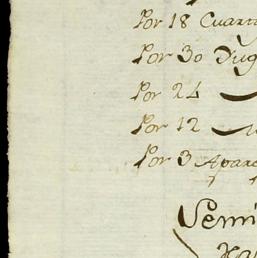 Por 18 Cuart
Por 30
Por 24
Por 12
Por 3 Apare
Semi